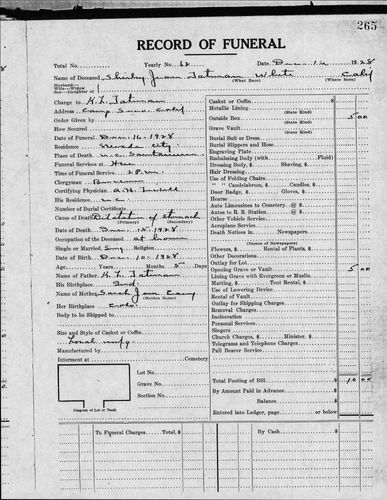 265
RECORD OF FUNERAL
Total No. Yearly No. 62 Date Dec. 16 1928
Name of Deceased Shirley Jean Tatman White Calif
(What Race) (Where Born)
Husband—
Wife—Widow of
Son—Daughter
Charge to K. L. Tatman
Address Camp Calif
Order Given by
How Secured
Date of Funeral Dec. 16 1928
Residence Nevada City
Place of Death N.C. Sanitarium
Funeral Services at Home
Time of Funeral Service 2 P.M.
Clergyman
Certifying Physician A. H.
His Residence N.C.
Number of Burial Certificate
Cause of Death Dilatation of Stomach
(Primary) (Secondary)
Date of Death Dec. 15 1928
Occupation of the Deceased at home
Single or Married Sing Religion
Date of Birth Dec. 10 1928
Age: Years Months 5 Days
Name of Father K. L. Tatman
His Birthplace Ind.
Name of Mother Sarah Jane
(Maiden Name)
Her Birthplace Colo.
Body to be Shipped to
Size and Style of Casket or Coffin
Local mfg.
Manufactured by
Interment at Cemetery
Lot No.
Grave No.
Section No.
Diagram of Lot or Vault
Casket or Coffin
Metallic Lining
(State Kind)
Outside Box 5 00
(State Kind)
Grave Vault
(State Kind)
Burial Suit or Dress
Burial Slippers and Hose
Engraving Plate
Embalming Body (with Fluid)
Dressing Body, $ Shaving, $
Hair Dressing
Use of Folding Chairs
" " Candelabrum, $ Candles, $
Door Badge, $ Gloves, $
Hearse
Auto Limousines to Cemetery @ $
Autos to R. R. Station @ $
Other Vehicle Service
Aeroplane Service
Death Notices in Newspapers
(Names of Newspapers)
Flowers, $ Rental of Plants, $
Other Decorations
Outlay for Lot
Opening Grave or Vault 5 00
Lining Grave with Evergreen or Muslin
Matting, $ Tent Rental, $
Use of Lowering Device
Rental of Vault
Outlay for Shipping Charges
Removal Charges
Incineration
Personal Services
Singers
Church Charges, $ Minister, $
Telegrams and Telephone Charges
Pall Bearer Service
Total Footing of Bill $ 10 00
By Amount Paid in Advance
Balance
Entered into Ledger, page or below
To Funeral Charges Total, $ By Cash $